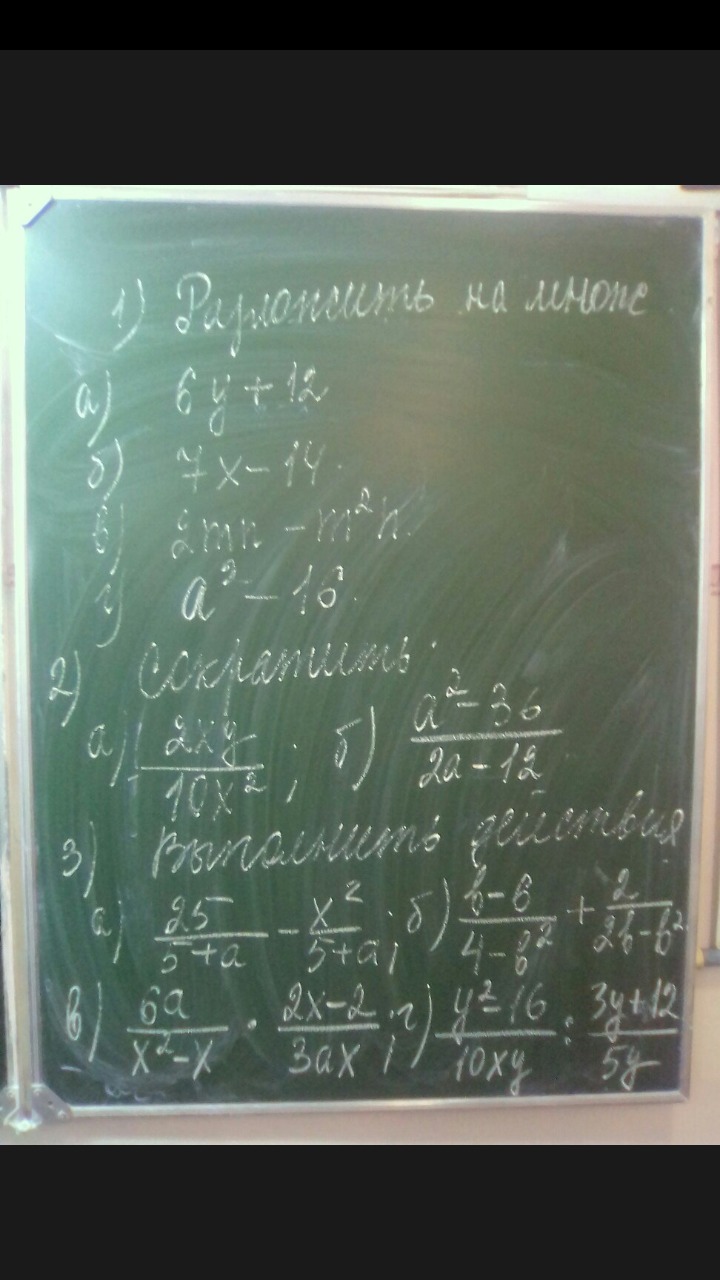 1) Разложить на множ
а) 6y + 12
б) 7x - 14.
в) 2mn - m²n.
г) a² - 16.
2) Сократить.
а) 2xy/10x² ; б) a² - 36/2a - 12
3) Выполнить действия
а) 25/5+a - x²/5+a ; б) b-6/4-b² + 2/2b-b²
в) 6a/x²-x · 2x-2/3ax ; г) y²-16/10xy : 3y+12/5y